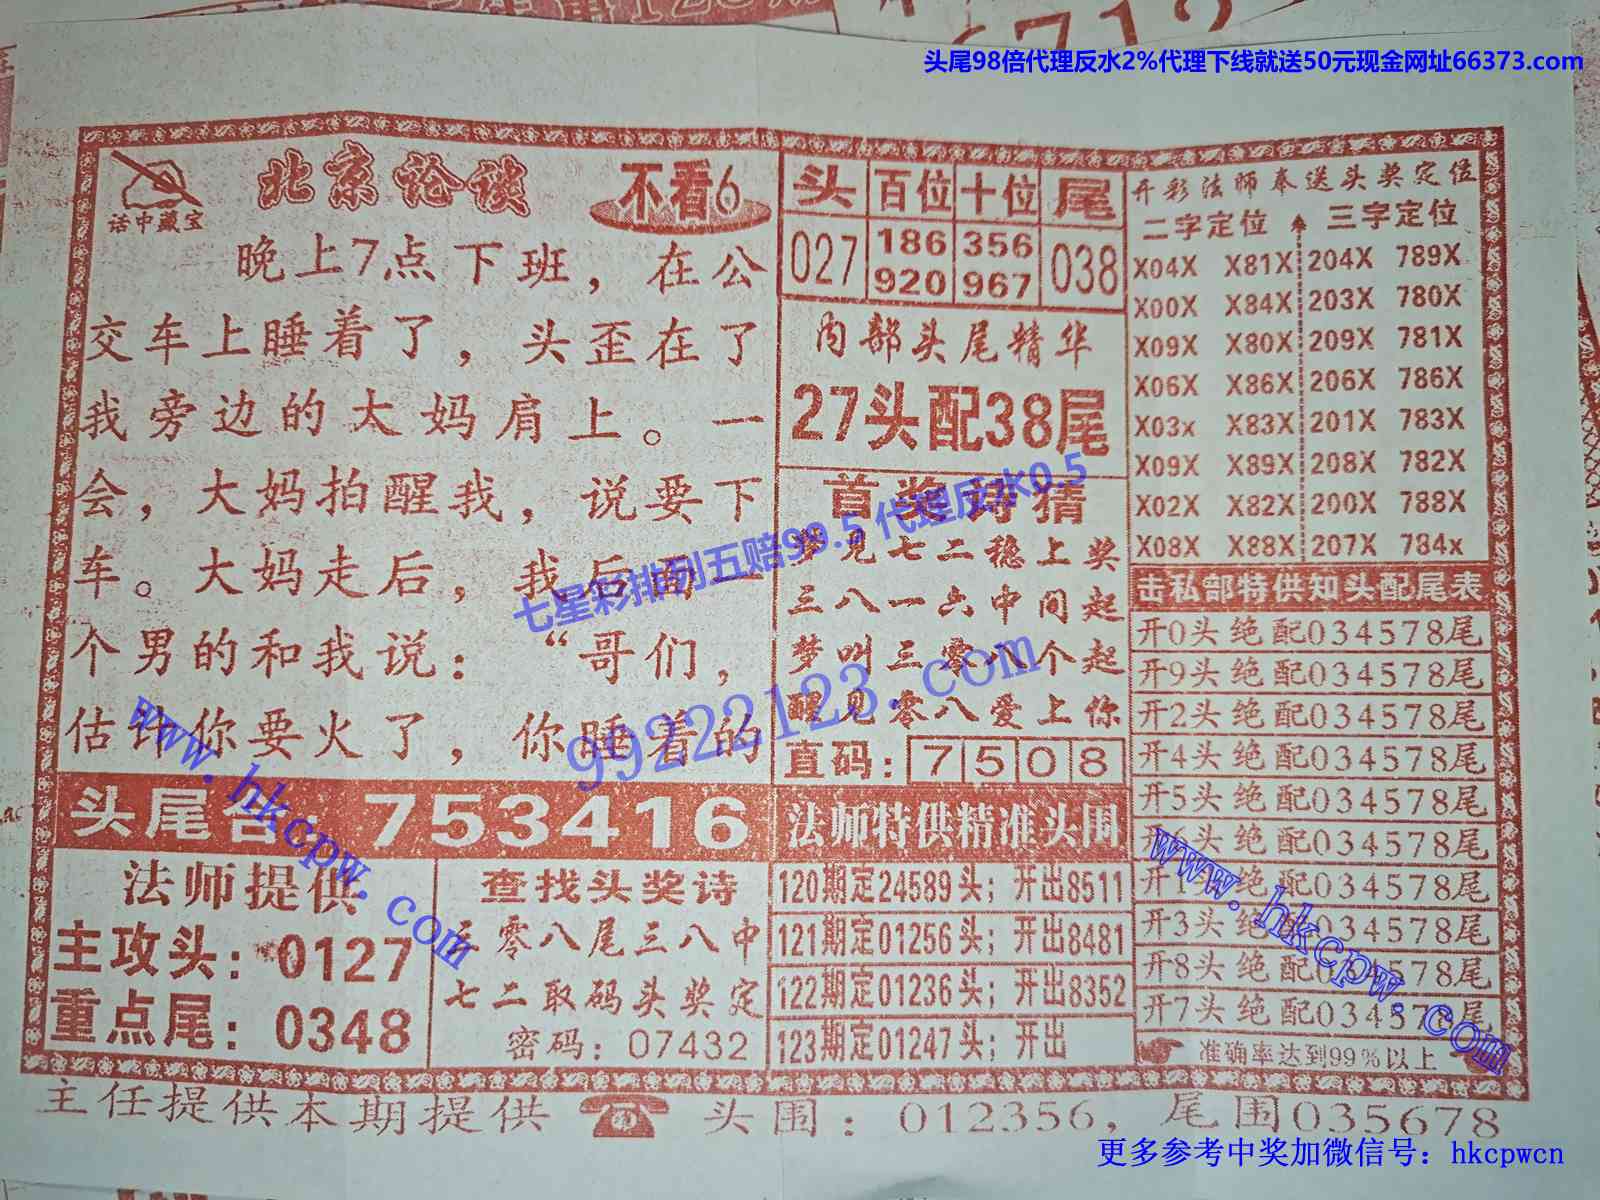 头尾98倍代理反水2%代理下线就送50元现金网址66373.com
话中藏宝
北京论谈
不看6
晚上7点下班，在公
交车上睡着了，头歪在了
我旁边的大妈肩上。一
会，大妈拍醒我，说要下
车。大妈走后，我后面一
个男的和我说：“哥们，
估计你要火了，你睡着的
头尾合 753416
法师提供
主攻头：0127
重点尾：0348
查找头奖诗
三零八尾三八中
七二取码头奖定
密码：07432
头 百位 十位 尾
027 186 356 038
920 967
内部头尾精华
27头配38尾
首奖诗猜
梦见七二稳上奖
三八一六中间起
梦叫三零八个起
醒见零八爱上你
直码：7508
法师特供精准头围
120期定24589头；开出8511
121期定01256头；开出8481
122期定01236头；开出8352
123期定01247头；开出
开彩法师奉送头奖定位
二字定位 三字定位
X04X X81X 204X 789X
X00X X84X 203X 780X
X09X X80X 209X 781X
X06X X86X 206X 786X
X03x X83X 201X 783X
X09X X89X 208X 782X
X02X X82X 200X 788X
X08X X88X 207X 784x
击私部特供知头配尾表
开0头绝配034578尾
开9头绝配034578尾
开2头绝配034578尾
开4头绝配034578尾
开5头绝配034578尾
开6头绝配034578尾
开1头绝配034578尾
开3头绝配034578尾
开8头绝配034578尾
开7头绝配034578尾
准确率达到99%以上
主任提供本期提供 头围：012356，尾围035678
七星彩排列五赔99.5 代理反水0.5
99222123.com
www.hkcpw.com
www.hkcpw.com
更多参考中奖加微信号：hkcpwcn